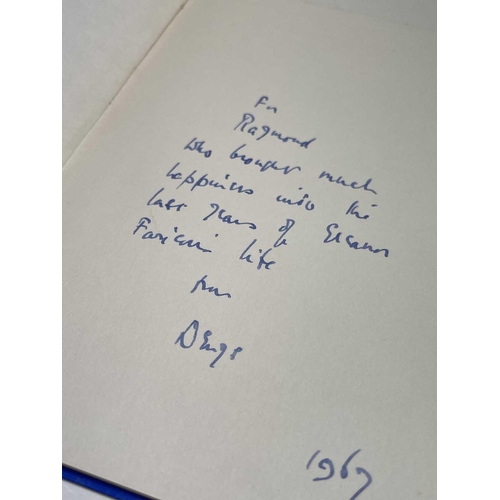 For
Raymond
who brought much
happiness into the
last years of Eleanor
Farjeon's life
from
Denys
1967